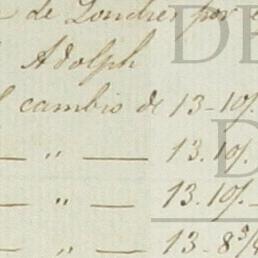 de Londres por
Adolph
cambio de 13-10/.
— " — 13.10/.
— " — 13.10/.-
— " — 13-8 3/8